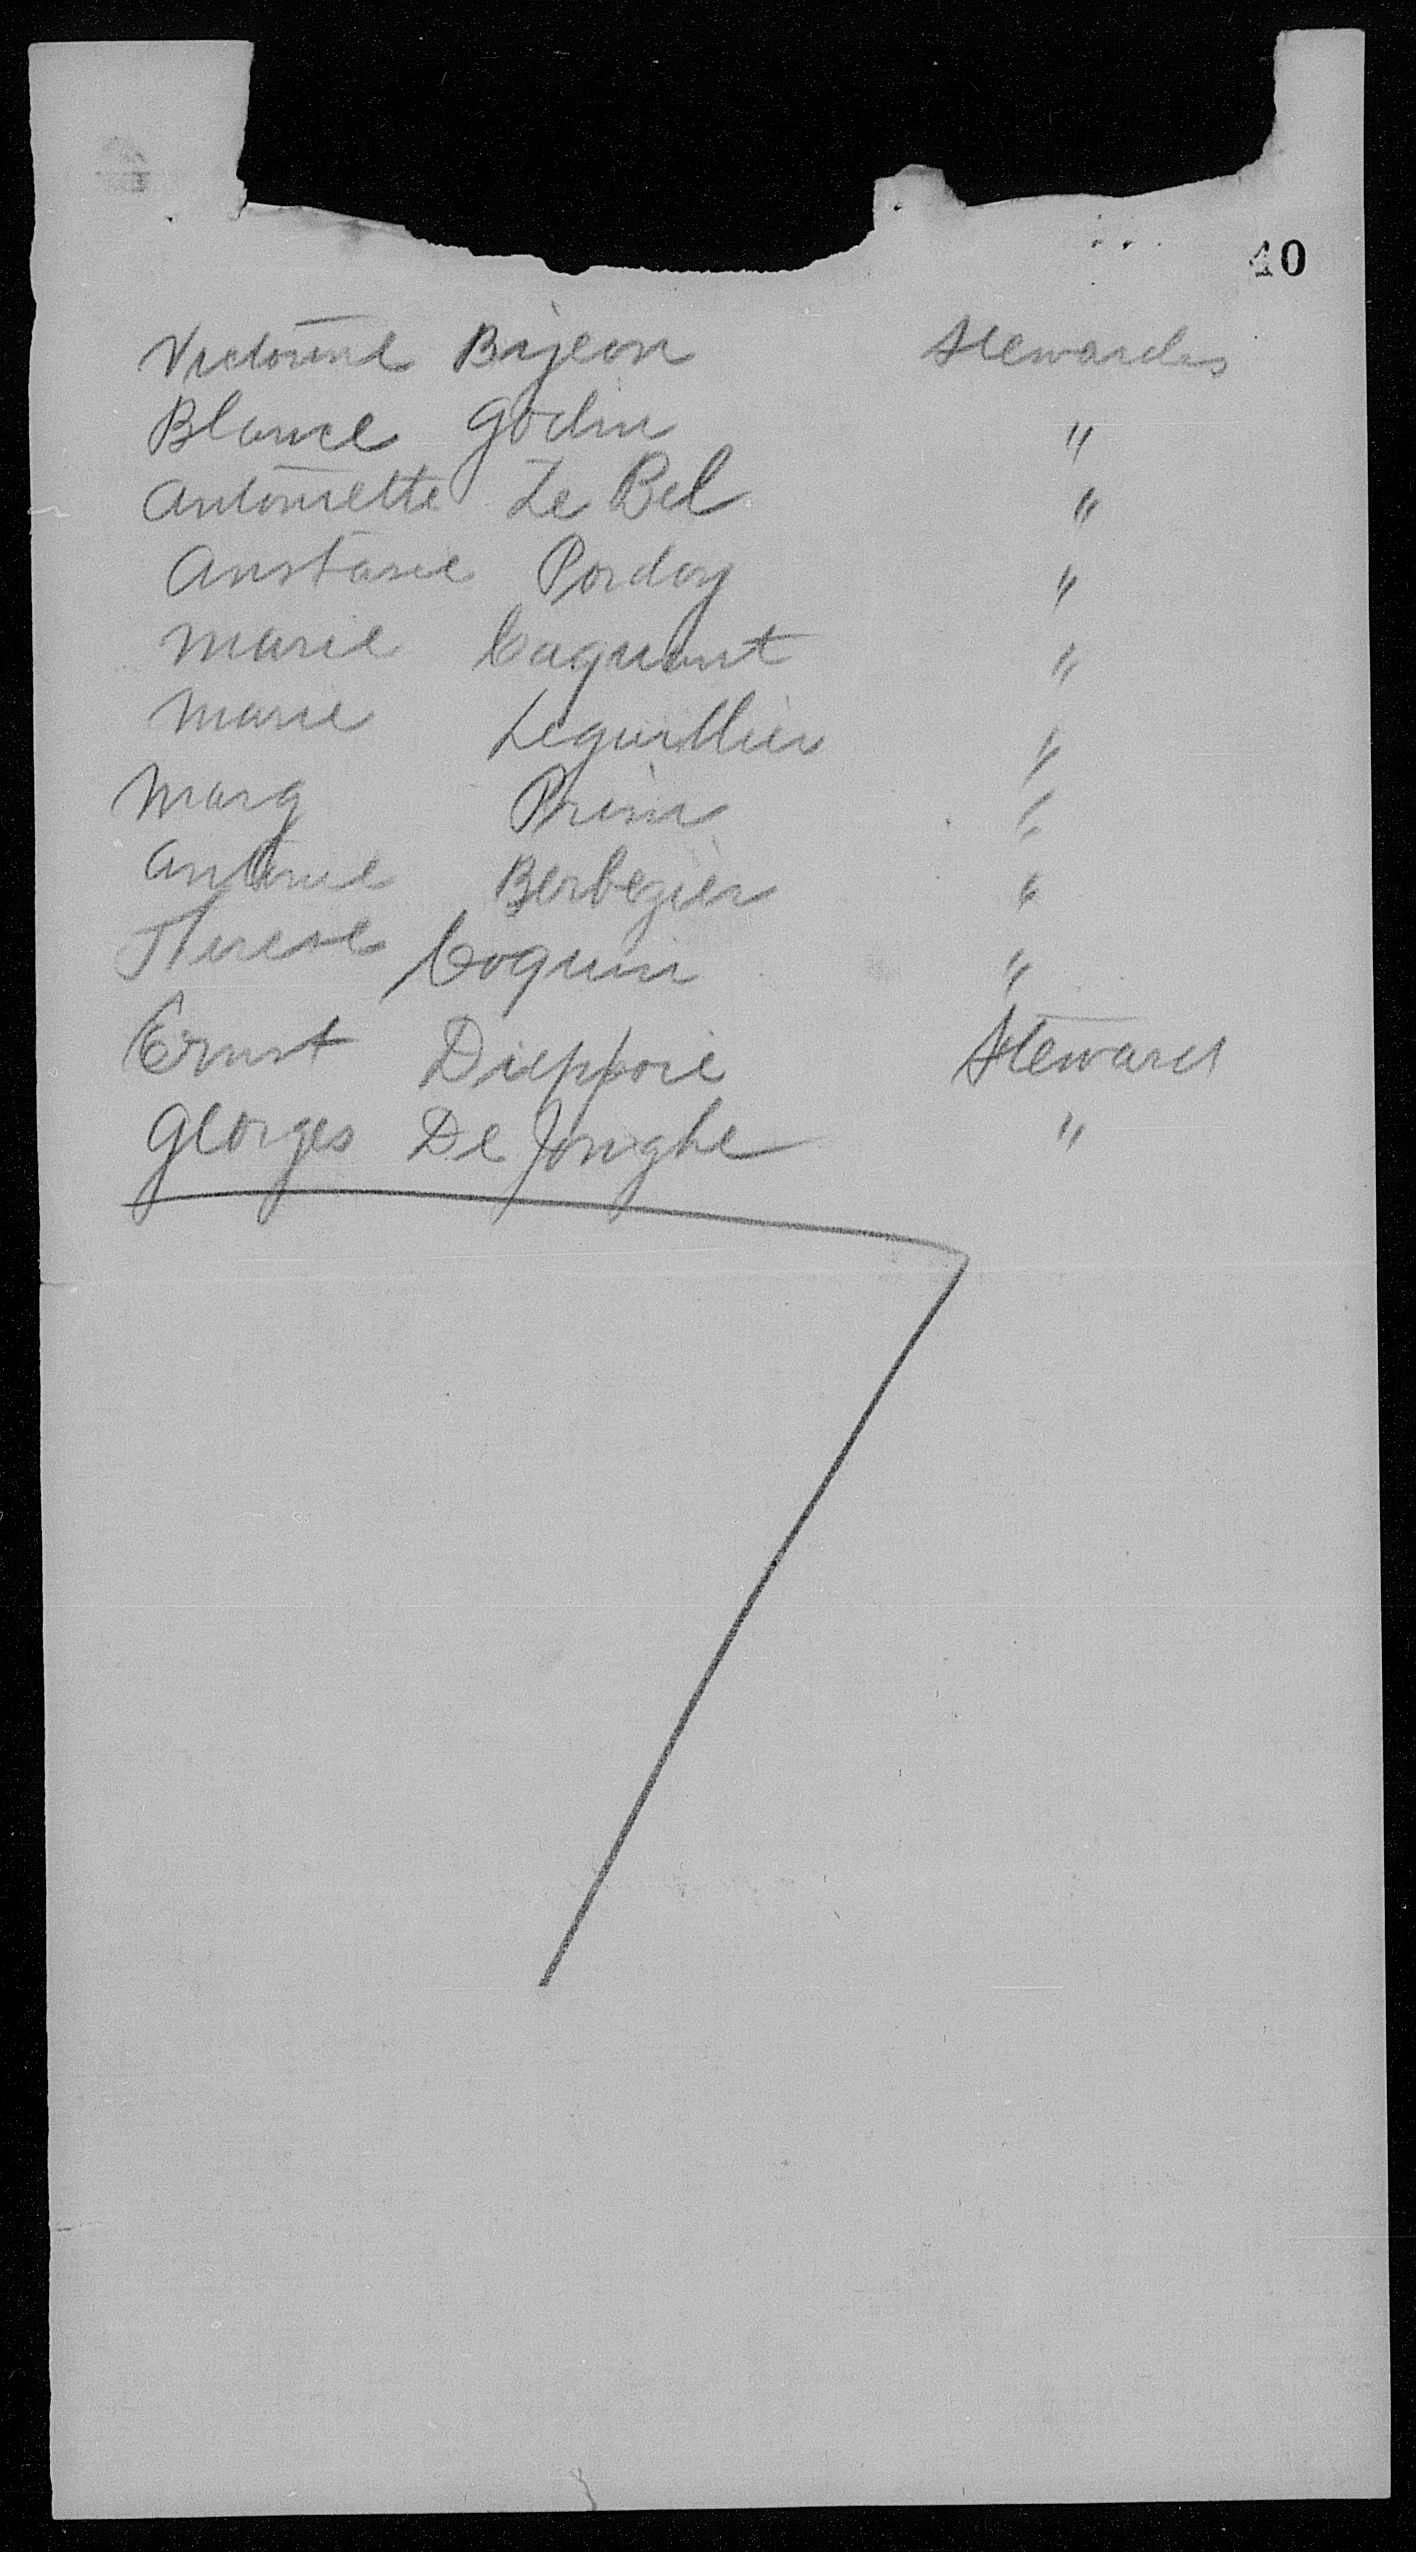 40
Victorine Bijeon Stewardes
Blance Godin "
Antoinette Le Bel "
Anstasie Pordoy "
Marie Caquant "
Marie Leguillier "
Marg Prim "
Antonie Berbezier "
Therese Coquin "
Ernst Dieppoie Steward
Georges De Jonghe "